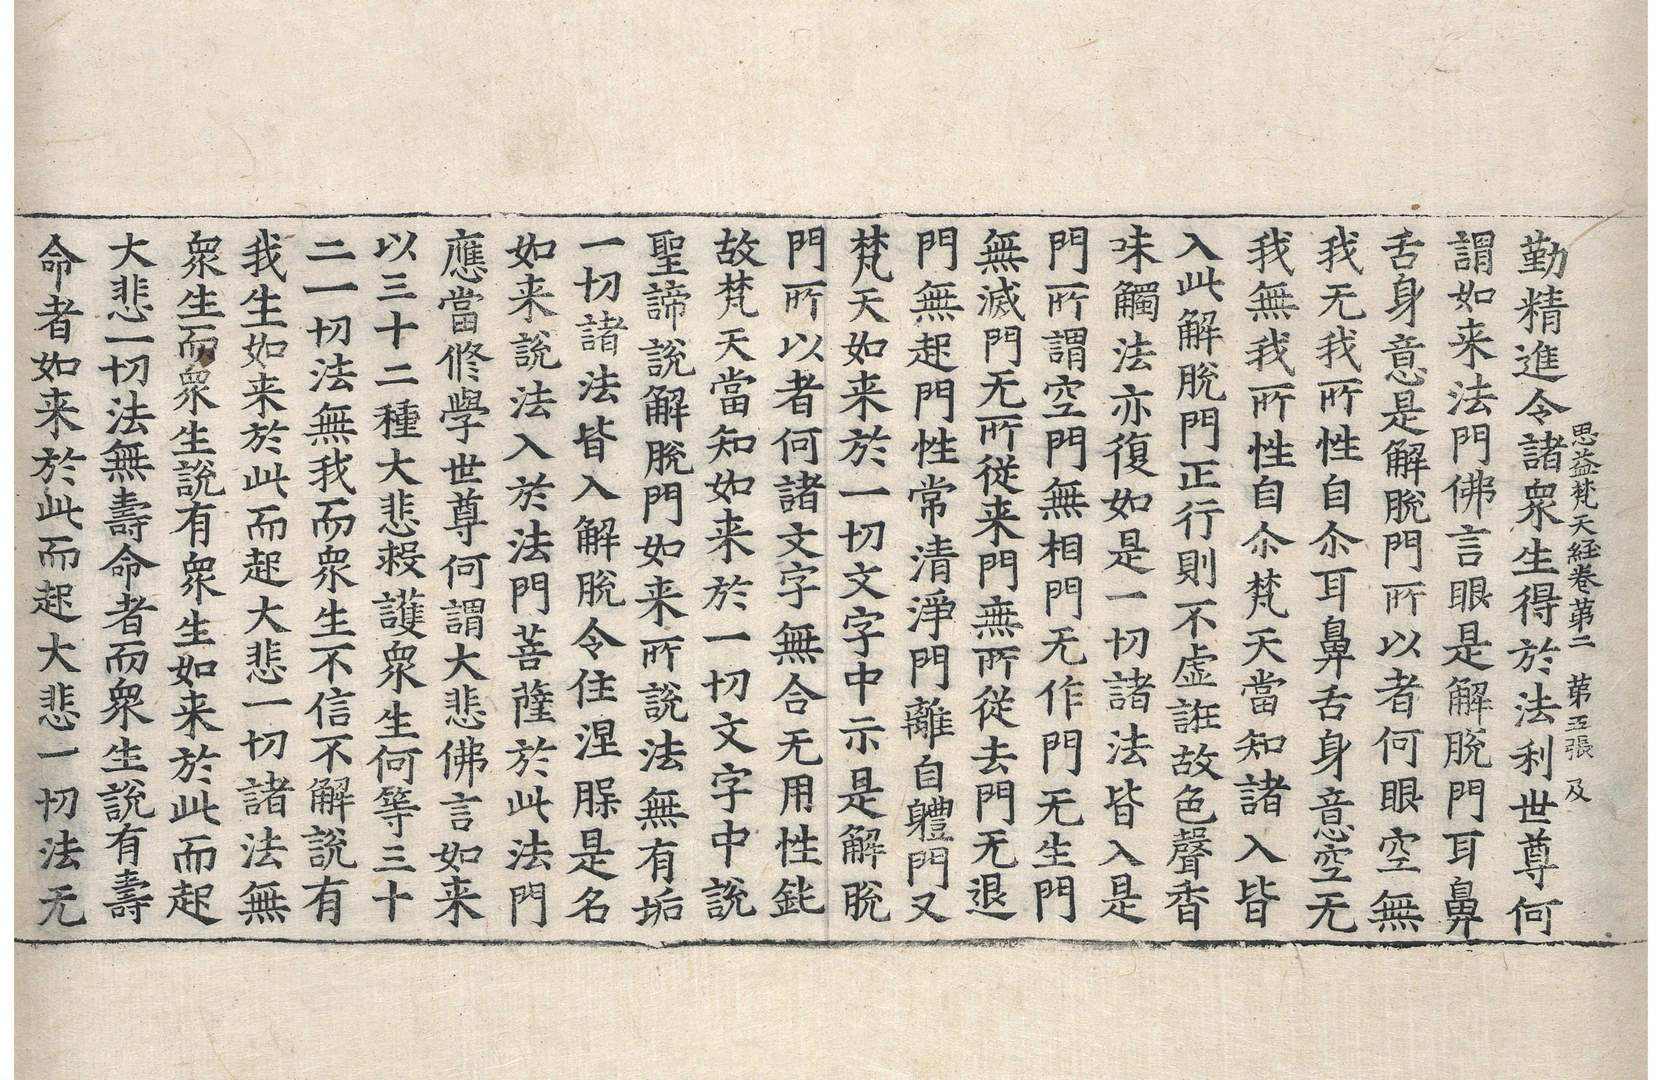 思益梵天経卷第二　第五張　及
勤精進令諸衆生得於法利世尊何
謂如来法門佛言眼是解脫門耳鼻
舌身意是解脫門所以者何眼空無
我无我所性自尒耳鼻舌身意空无
我無我所性自尒梵天當知諸入皆
入此解脫門正行則不虛誑故色聲香
味觸法亦復如是一切諸法皆入是
門所謂空門無相門无作門无生門
無滅門无所從来門無所從去門无退
門無起門性常清淨門離自軆門又
梵天如来於一切文字中示是解脫
門所以者何諸文字無合无用性鈍
故梵天當知如来於一切文字中說
聖諦說解脫門如来所說法無有垢
一切諸法皆入解脫令住涅槃是名
如来說法入於法門菩薩於此法門
應當修學世尊何謂大悲佛言如来
以三十二種大悲救護衆生何等三十
二一切法無我而衆生不信不解說有
我生如来於此而起大悲一切諸法無
衆生而衆生說有衆生如来於此而起
大悲一切法無壽命者而衆生說有壽
命者如来於此而起大悲一切法无